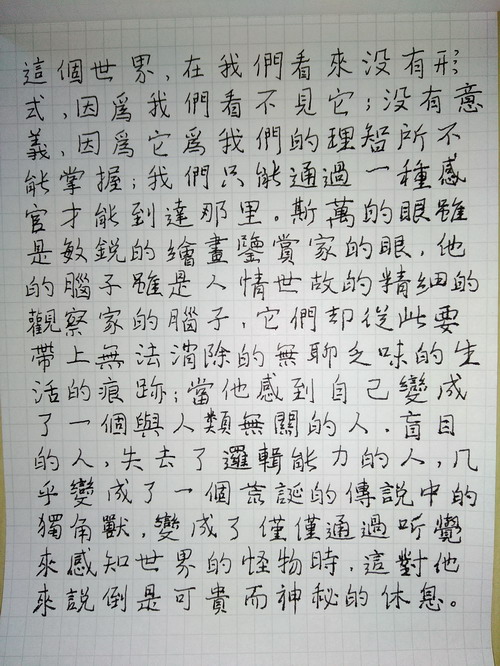 這個世界,在我們看來没有形
式,因爲我們看不見它;没有意
義,因爲它爲我們的理智所不
能掌握;我們只能通過一種感
官才能到達那里。斯萬的眼雖
是敏鋭的繪畫鑒賞家的眼,他
的腦子雖是人情世故的精細的
觀察家的腦子,它們却從此要
帶上無法消除的無聊乏味的生
活的痕跡;當他感到自己變成
了一個與人類無關的人,盲目
的人,失去了邏輯能力的人,几
乎變成了一個荒誕的傳説中的
獨角獸,變成了僅僅通過听覺
來感知世界的怪物時,這對他
來説倒是可貴而神秘的休息。